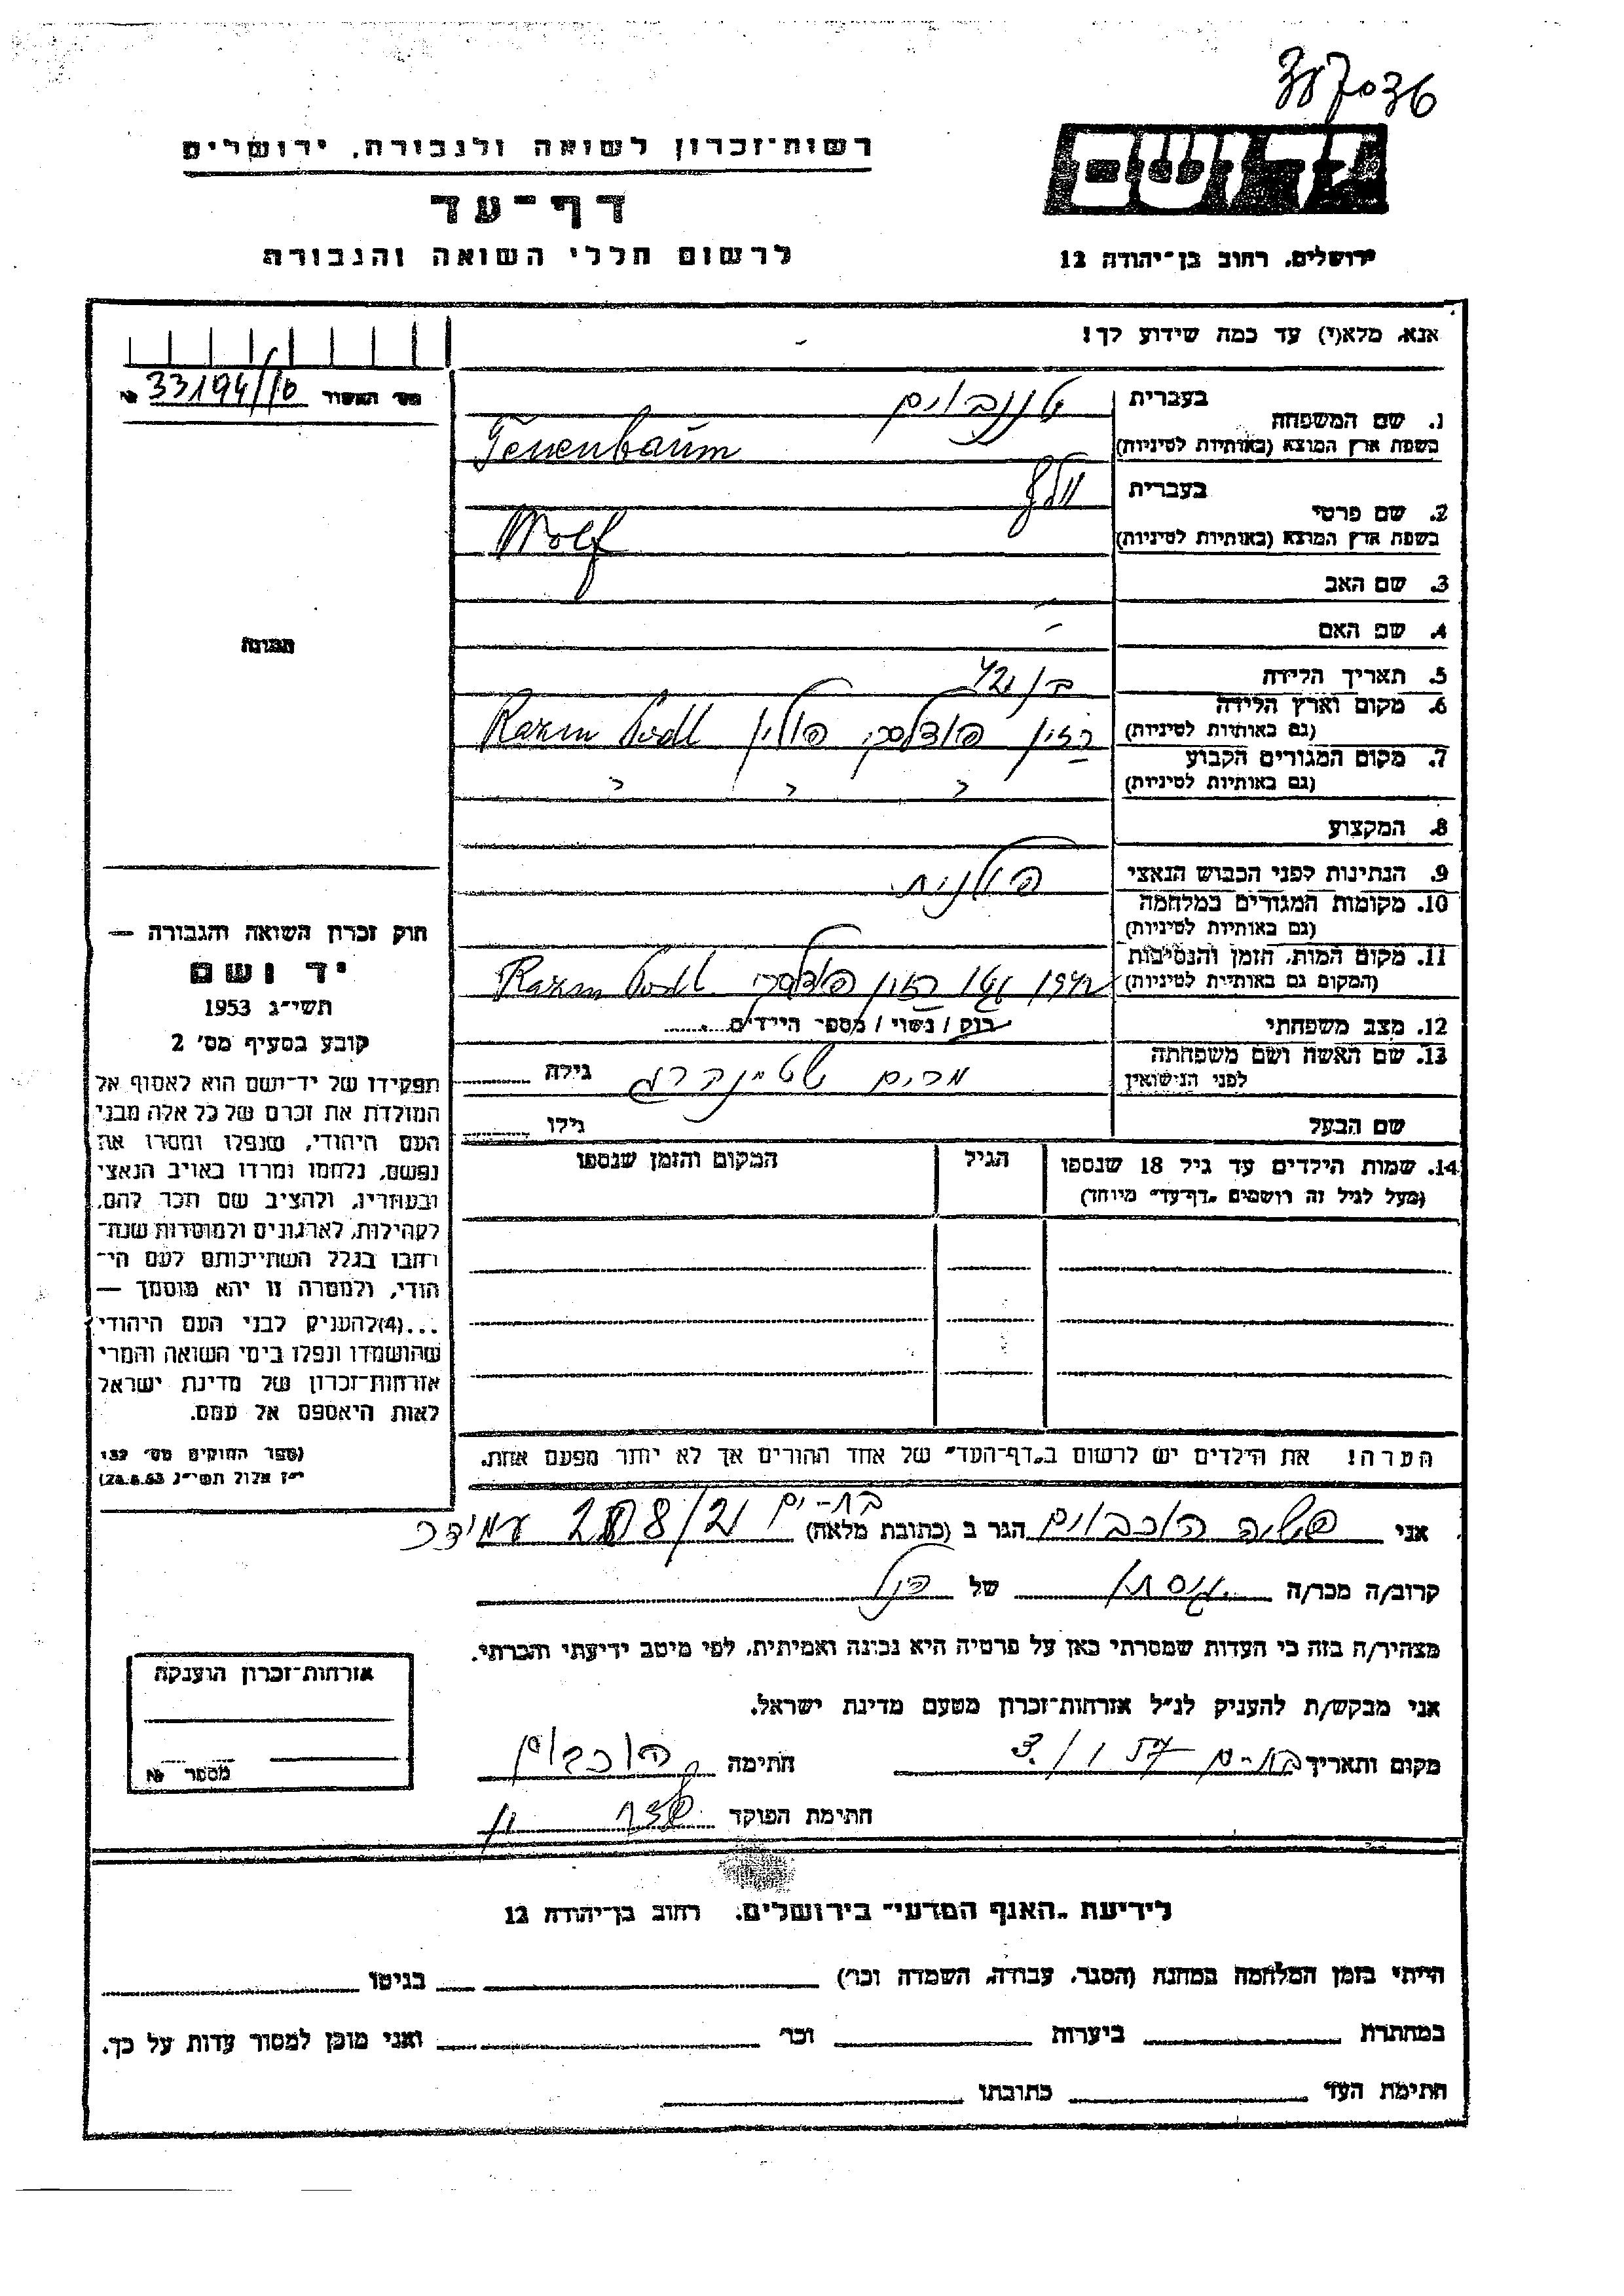 387036
רשות-זכרון לשואה ולגבורה, ירושלים
דף-עד
לרשום חללי השואה והגבורה
יד ושם
ירושלים, רחוב בן-יהודה 12
אנא, מלא(י) עד כמה שידוע לך!
מס' האשור № 33194/10
תמונה
1. שם המשפחה
בעברית טננבוים
בשפת ארץ המוצא (באותיות לטיניות) Tenenbaum
2. שם פרטי
בעברית וולף
בשפת ארץ המוצא (באותיות לטיניות) Wolf
3. שם האב –
4. שם האם –
5. תאריך הלידה
6. מקום וארץ הלידה
(גם באותיות לטיניות) רזין פודלסקי פולין Razin Podl
7. מקום המגורים הקבוע
(גם באותיות לטיניות) " " "
8. המקצוע
9. הנתינות לפני הכבוש הנאצי פולנית
10. מקומות המגורים במלחמה
(גם באותיות לטיניות)
11. מקום המות, הזמן והנסיבות
(המקום גם באותיות לטיניות) 1942 גטו רזין פודלסקי Razin Podl.
12. מצב משפחתי רוק / נשוי / מספר הילדים
13. שם האשה ושם משפחתה
לפני הנישואין מרים גילה
שם הבעל גילו
14. שמות הילדים עד גיל 18 שנספו
(מעל לגיל זה רושמים "דף-עד" מיוחד)
הגיל
המקום והזמן שנספו
הערה! את הילדים יש לרשום ב"דף-העד" של אחד ההורים אך לא יותר מפעם אחת.
חוק זכרון השואה והגבורה –
יד ושם
תשי"ג 1953
קובע בסעיף מס' 2
תפקידו של יד-ושם הוא לאסוף אל
המולדת את זכרם של כל אלה מבני
העם היהודי, שנפלו ומסרו את
נפשם, נלחמו ומרדו באויב הנאצי
ובעוזריו, ולהציב שם וזכר להם,
לקהילות, לארגונים ולמוסדות שנח-
רבו בגלל השתייכותם לעם הי-
הודי, ולמטרה זו יהא מוסמך –
...(4)להעניק לבני העם היהודי
שהושמדו ונפלו בימי השואה והמרי
אזרחות-זכרון של מדינת ישראל
לאות היאספם אל עמם.
(ספר החוקים מס' 132
י"ז אלול תשי"ג 28.8.53)
אני הוכבוים הגר ב (כתובת מלאה) בת-ים עמידר
קרוב/ה מכר/ה גיסתו של הנ"ל
מצהיר/ה בזה כי העדות שמסרתי כאן על פרטיה היא נכונה ואמיתית, לפי מיטב ידיעתי והכרתי.
אני מבקש/ת להעניק לנ"ל אזרחות-זכרון מטעם מדינת ישראל.
מקום ותאריך בת-ים חתימה הוכבוים
חתימת הפוקד
אזרחות-זכרון הוענקה
מספר №
לידיעת "האגף המדעי" בירושלים, רחוב בן-יהודה 12
הייתי בזמן המלחמה במחנה (הסגר, עבודה, השמדה וכו') בגיטו
במחתרת ביערות וכו' ואני מוכן למסור עדות על כך.
חתימת העד כתובתו